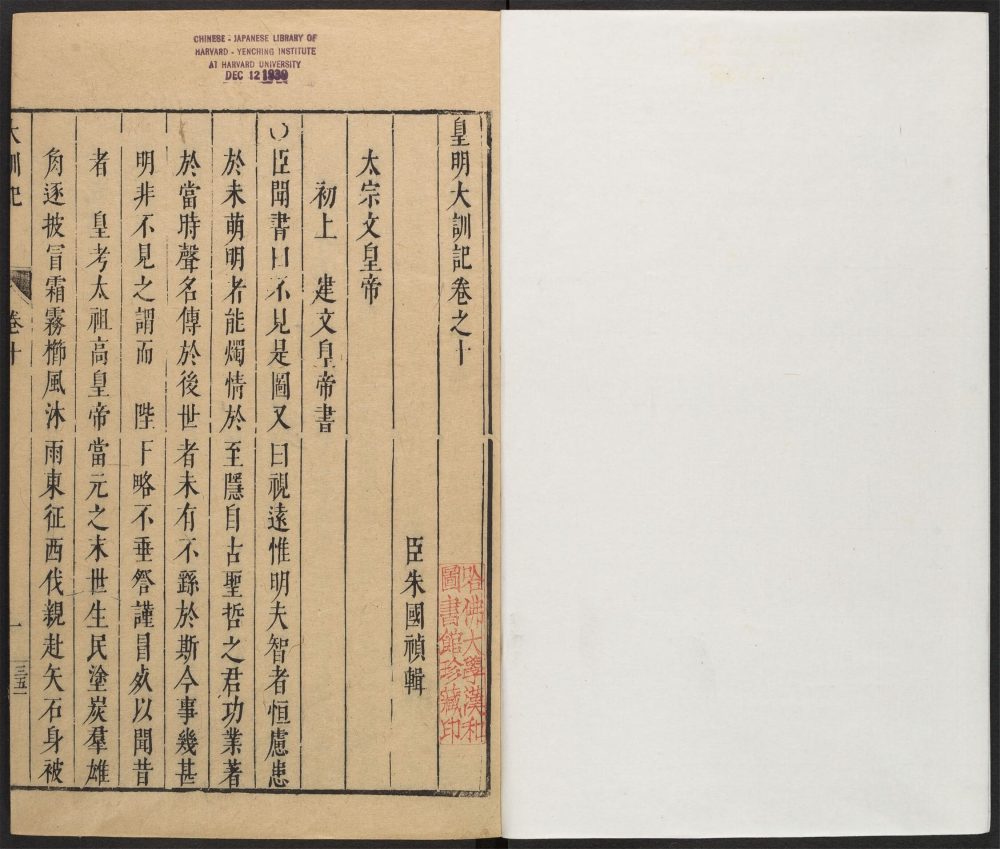 CHINESE - JAPANESE LIBRARY OF
HARVARD - YENCHING INSTITUTE
AT HARVARD UNIVERSITY
DEC 12 1939
皇明大訓記卷之十
臣朱國禎輯
太宗文皇帝
初上　建文皇帝書
○臣聞書曰不見是圖又曰視遠惟明夫智者恒慮患
於未萌明者能燭情於至隱自古聖哲之君功業著
於當時聲名傳於後世者未有不繇於斯今事幾甚
明非不見之謂而　陛下略不垂詧謹冒死以聞昔
者　皇考太祖高皇帝當元之末世生民塗炭羣雄
角逐披冒霜霧櫛風沐雨東征西伐親赴矢石身被
大訓記　卷十　一　三五一
哈佛大學漢和
圖書館珍藏印